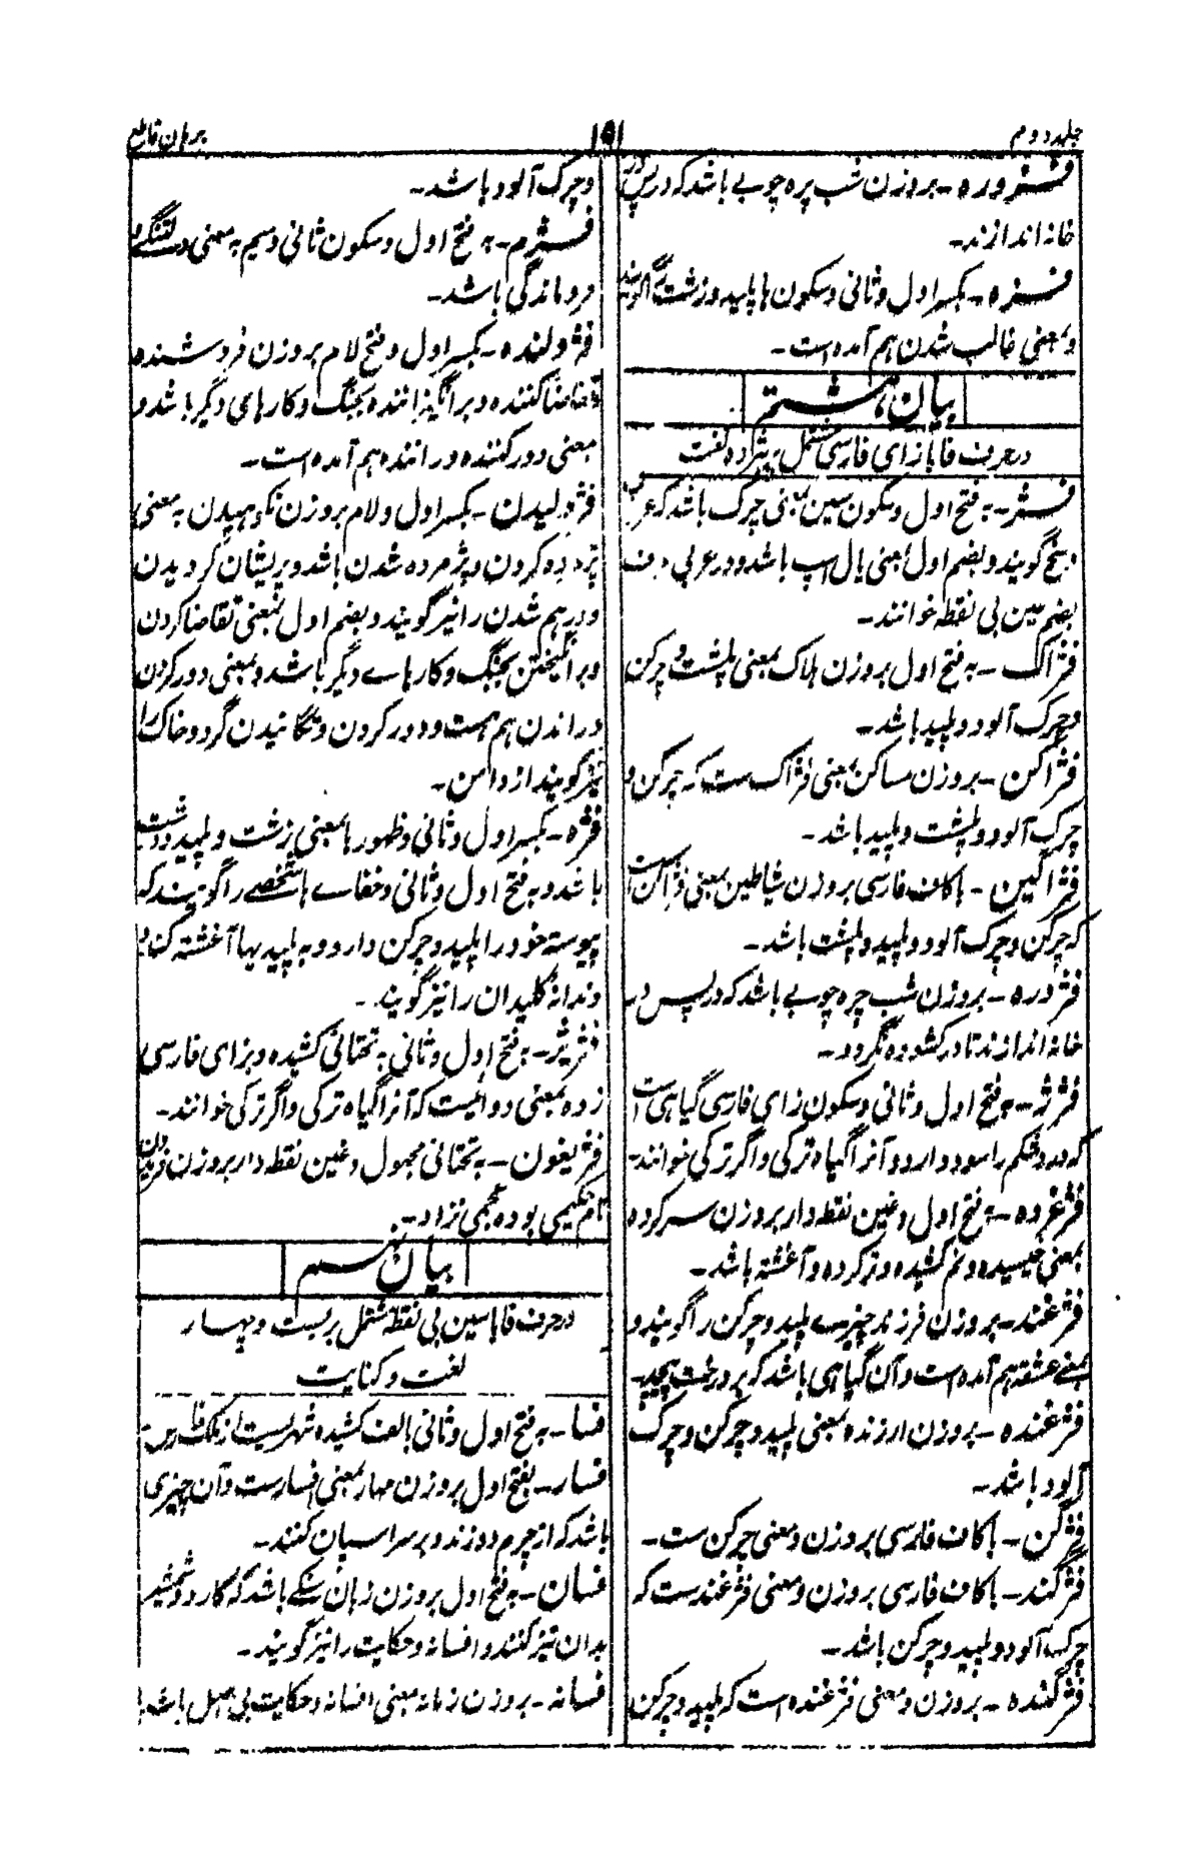 جلد دوم
۱۵۱
برهان قاطع
فزوره - بروزن شب پره چوبے باشد که در پس در
خانه اندازند -
فزه - بکسر اول و ثانی و سکون ها پلید و زشت
و بمعنی غالب شدن هم آمده است -
بیان هشتم
در حرف فا با زای فارسی مشتمل بر پانزده لغت
فژ - به فتح اول و سکون سین بمعنی چرک باشد که عرب
وسخ گویند و بضم اول بمعنی یال اسپ باشد و در عربی عرف
بضم عین بی نقطه خوانند -
فژاک - به فتح اول بروزن هلاک بمعنی پلشت و چرکن
و چرک آلود و پلید باشد -
فژاکن - بروزن ساکن بمعنی فژاک ست که چرکن و
چرک آلود و پلشت و پلید باشد -
فژاگین - باکاف فارسی بروزن شیاطین بمعنی فژاکن است
که چرکن و چرک آلود و پلید و پلشت باشد -
فژدره - بروزن شب چره چوبے باشد که در پس در
خانه اندازند تا در کشوده نگردد -
فژژ - به فتح اول و ثانی و سکون زای فارسی گیاهی است
که درد شکم را سود دارد و آنرا گیاه ترکی و اگر ترکی خوانند -
فژغرده - به فتح اول و غین نقطه دار بروزن سرکرده
بمعنی خیسیده و نم کشیده و تر کرده و آغشته باشد -
فژغند - بروزن فرزند چیزے پلید و چرکن را گویند و
بمعنے عشقه هم آمده است و آن گیاهی باشد که بر درخت پیچد -
فژغنده - بروزن ارزنده بمعنی پلید و چرکن و چرک
آلود باشد -
فژکن - باکاف فارسی بروزن و معنی چرکن ست -
فژگند - باکاف فارسی بروزن و معنی فژغند ست که
چرک آلود و پلید و چرکن باشد -
فژگنده - بروزن و معنی فژغنده است که پلید و چرکن
و چرک آلود باشد -
فژم - به فتح اول و سکون ثانی و میم به معنی دلتنگی و
فروماندگی باشد -
فژولنده - بکسر اول و فتح لام بروزن فروشنده
تقاضا کننده و برانگیزاننده بجنگ و کارهای دیگر باشد و
بمعنی دور کننده و راننده هم آمده است -
فژولیدن - بکسر اول و لام بروزن نکوهیدن به معنی
پژمرده کردن و پژمرده شدن باشد و پریشان گردیدن
و درهم شدن را نیز گویند و بضم اول بمعنی تقاضا کردن
و برانگیختن بجنگ و کارهاے دیگر باشد و بمعنی دور کردن
و راندن هم هست و دور کردن و تکانیدن گرد و خاک را
نیز گویند از دامن -
فژه - بکسر اول و ثانی و ظهور ها بمعنی زشت و پلید و درشت
باشد و به فتح اول و ثانی و خفاے ها شخصے را گویند که
پیوسته خود را پلید و چرکن دارد و به پلیدیها آغشته کند و
دندانۀ کلیدان را نیز گویند -
فژیژ - به فتح اول و ثانی به تحتانی کشیده و بزای فارسی
زده بمعنی دوائیست که آنرا گیاه ترکی و اگر ترکی خوانند -
فژیغون - به تحتانی مجهول و غین نقطه دار بروزن فریدون
نام حکیمی بوده عجمی نژاد -
بیان نهم
در حرف فا باسین بی نقطه مشتمل بر بست و چهار
لغت و کنایت
فسا - به فتح اول و ثانی بالف کشیده شهریست از ملک
فسار - بفتح اول بروزن مهار بمعنی افسارست و آن چیزی
باشد که از چرم دوزند و بر سر اسپان کنند -
فسان - به فتح اول بروزن زبان سنگے باشد که کارد و شمشیر
بدان تیز کنند و افسانه و حکایت را نیز گویند -
فسانه - بروزن زمانه بمعنی افسانه و حکایت بی اصل باشد